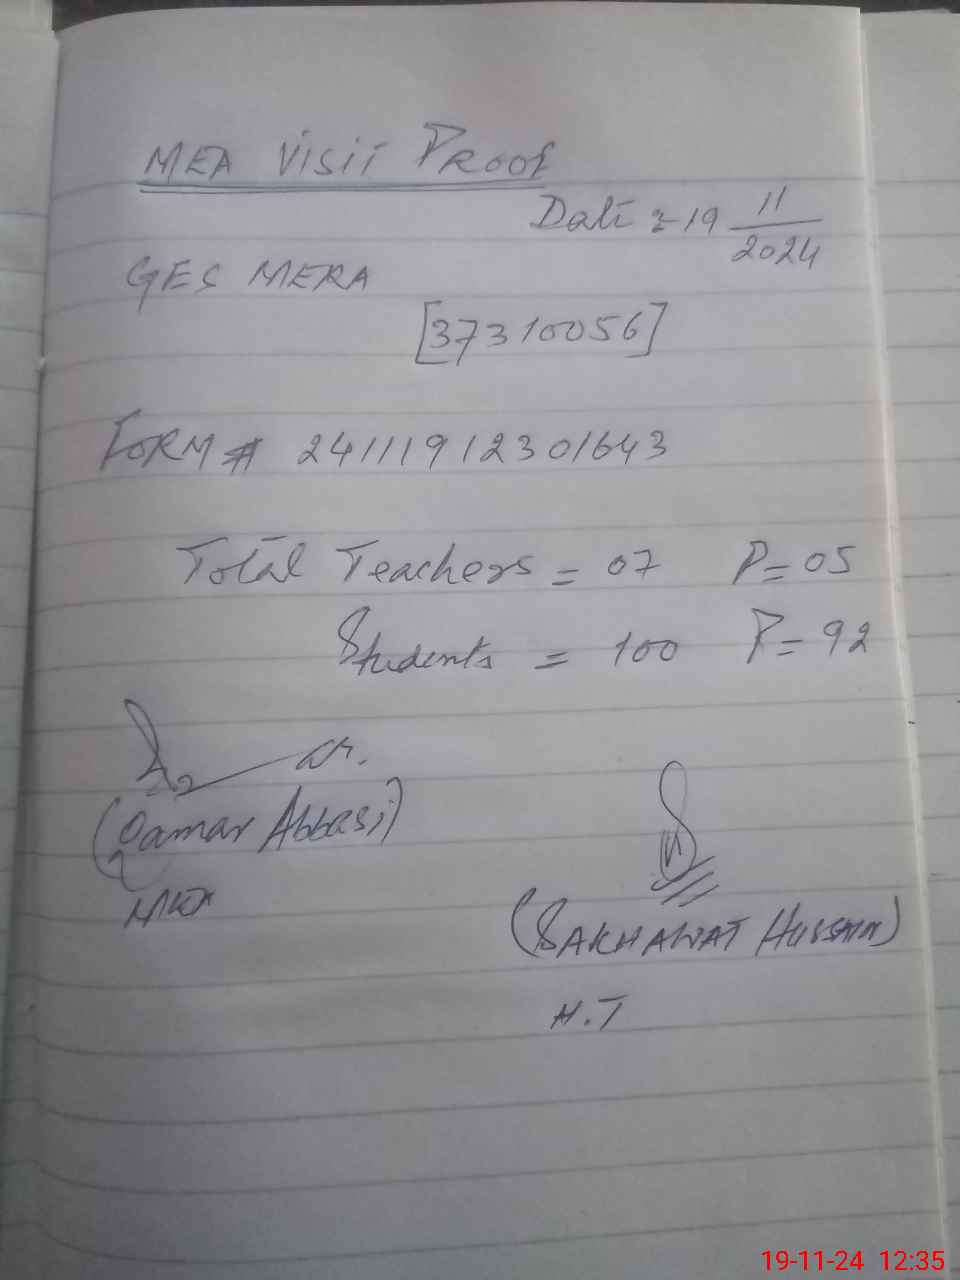 MEA Visit Proof
Date :- 19 11/2024
GES MERA
[37310056]
FORM # 24111912301643
Total Teachers = 07 P = 05
Students = 100 P = 92
(Qamar Abbasi)
MEA
(SAKHAWAT HUSSAIN)
H.T
19-11-24 12:35